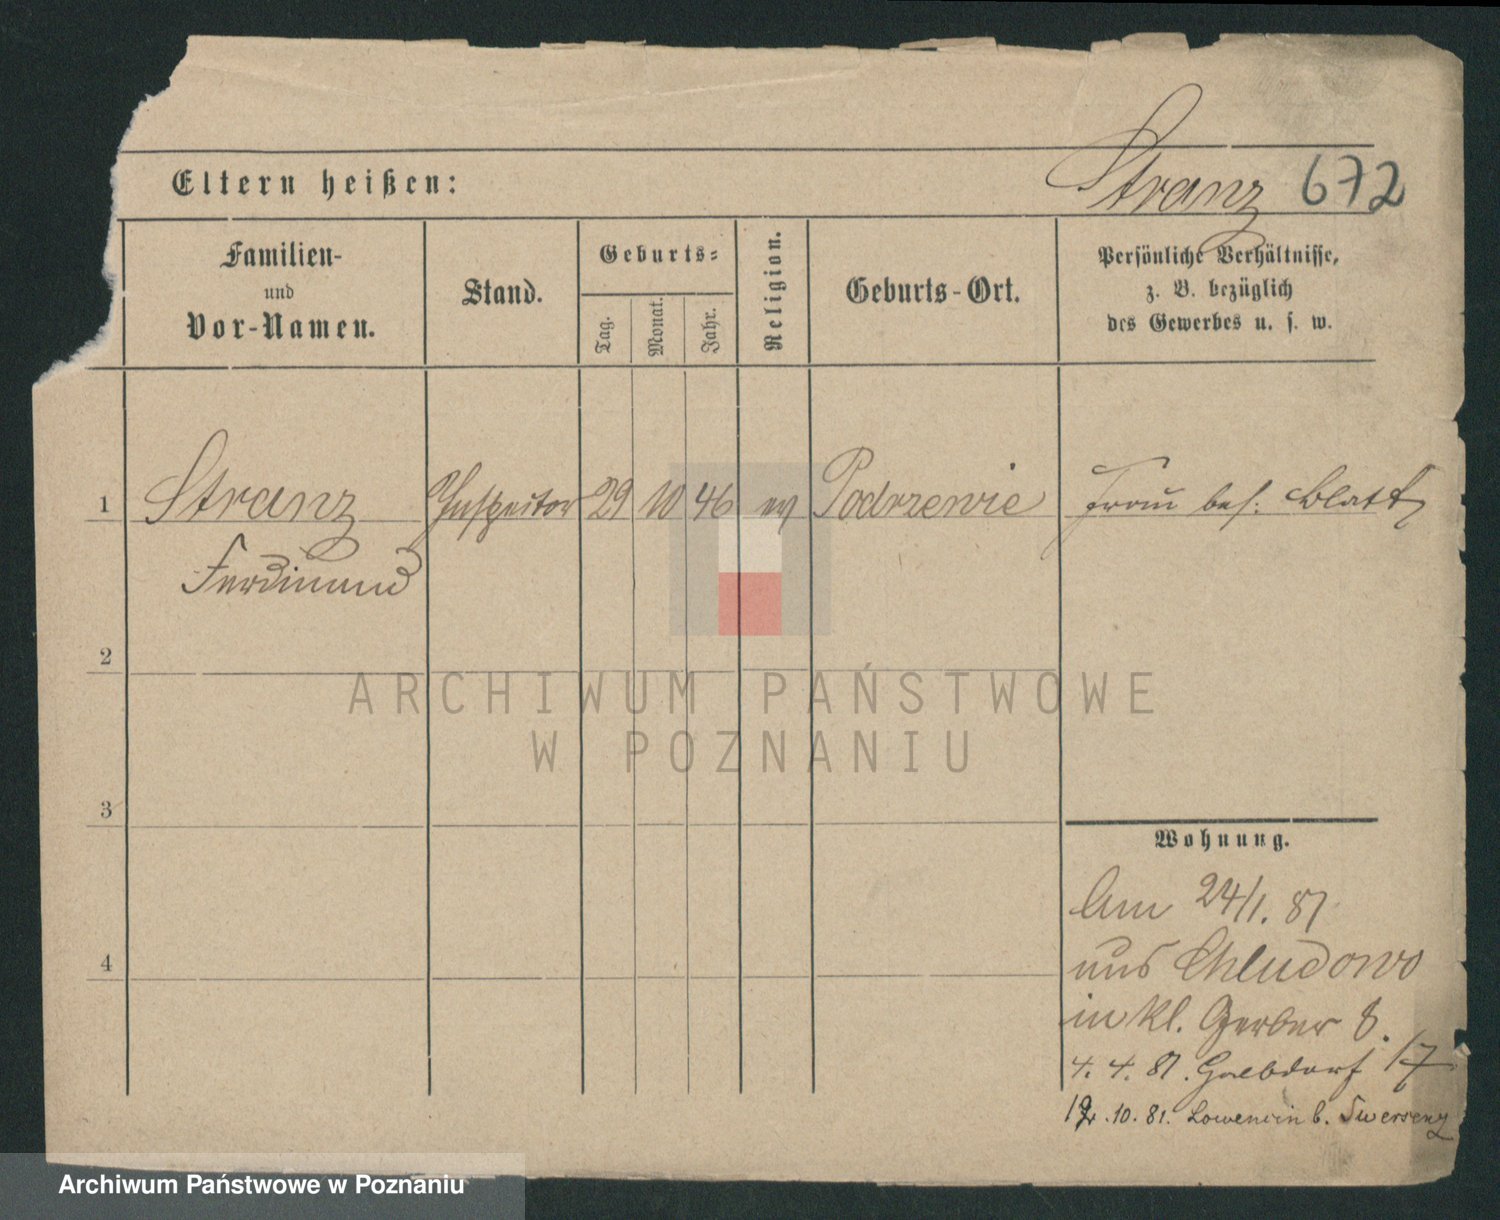 Stranz 672
Eltern heißen:
Familien-
und
Vor-Namen.
Stand.
Geburts-
Tag.
Monat.
Jahr.
Religion.
Geburts-Ort.
Persönliche Verhältnisse,
z. B. bezüglich
des Gewerbes u. s. w.
1 Stranz Inspector 29 10 46 ev Podrzewie Frau bes. Blatt
Ferdinand
2
3
4
Wohnung.
Am 24/1. 81
aus Chludowo
in kl. Gerber 8.
4. 4. 81. Halbdorf 17
10. 81. Lowencin b. Swersenz
ARCHIWUM PAŃSTWOWE
W POZNANIU
Archiwum Państwowe w Poznaniu